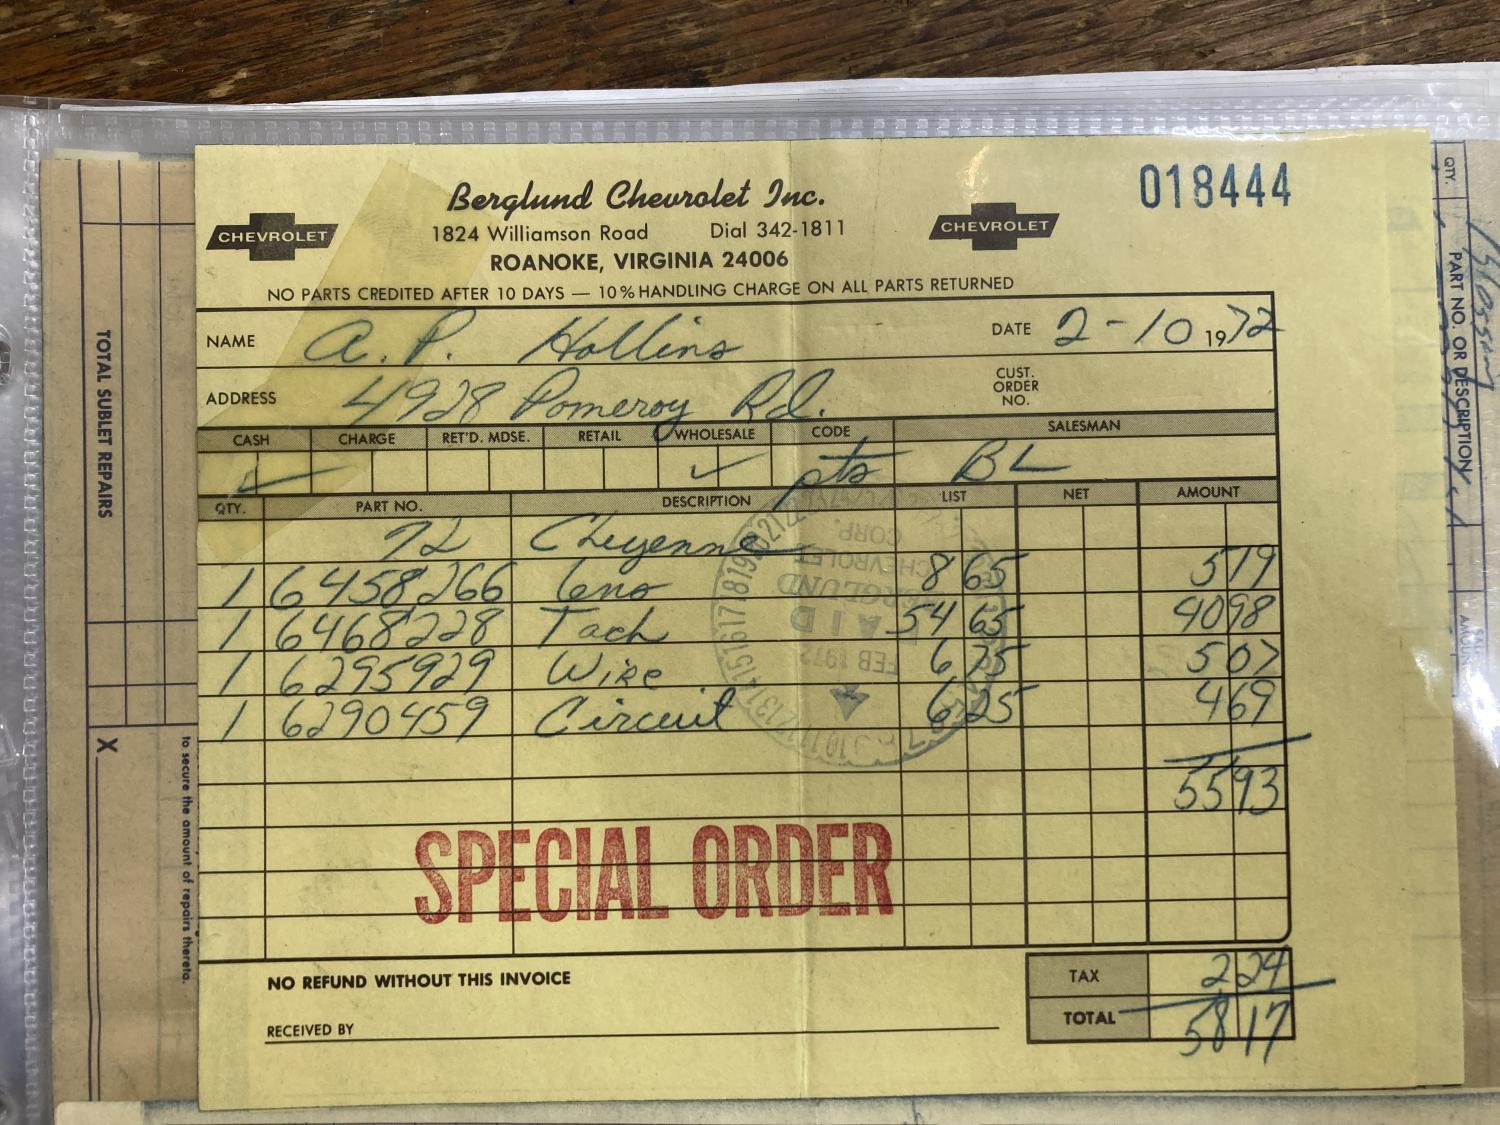 Berglund Chevrolet Inc.
018444
CHEVROLET
CHEVROLET
1824 Williamson Road Dial 342-1811
ROANOKE, VIRGINIA 24006
NO PARTS CREDITED AFTER 10 DAYS — 10% HANDLING CHARGE ON ALL PARTS RETURNED
NAME A. P. Hollins DATE 2-10 1972
ADDRESS 4928 Pomeroy Rd. CUST. ORDER NO.
CASH CHARGE RET'D. MDSE. RETAIL WHOLESALE CODE SALESMAN
✓ ✓ pts BL
QTY. PART NO. DESCRIPTION LIST NET AMOUNT
72 Cheyenne
1 6458266 8 65 5 19
1 6468228 Tach 54 65 40 98
1 6295929 Wire 6 75 5 07
1 6290459 Circuit 6 25 4 69
55 93
BERGLUND
CHEVROLET
CORP.
PAID
FEB 1972
SPECIAL ORDER
NO REFUND WITHOUT THIS INVOICE
TAX 2 24
RECEIVED BY
TOTAL 58 17
TOTAL SUBLET REPAIRS
X
to secure the amount of repairs thereto.
QTY.
PART NO. OR DESCRIPTION